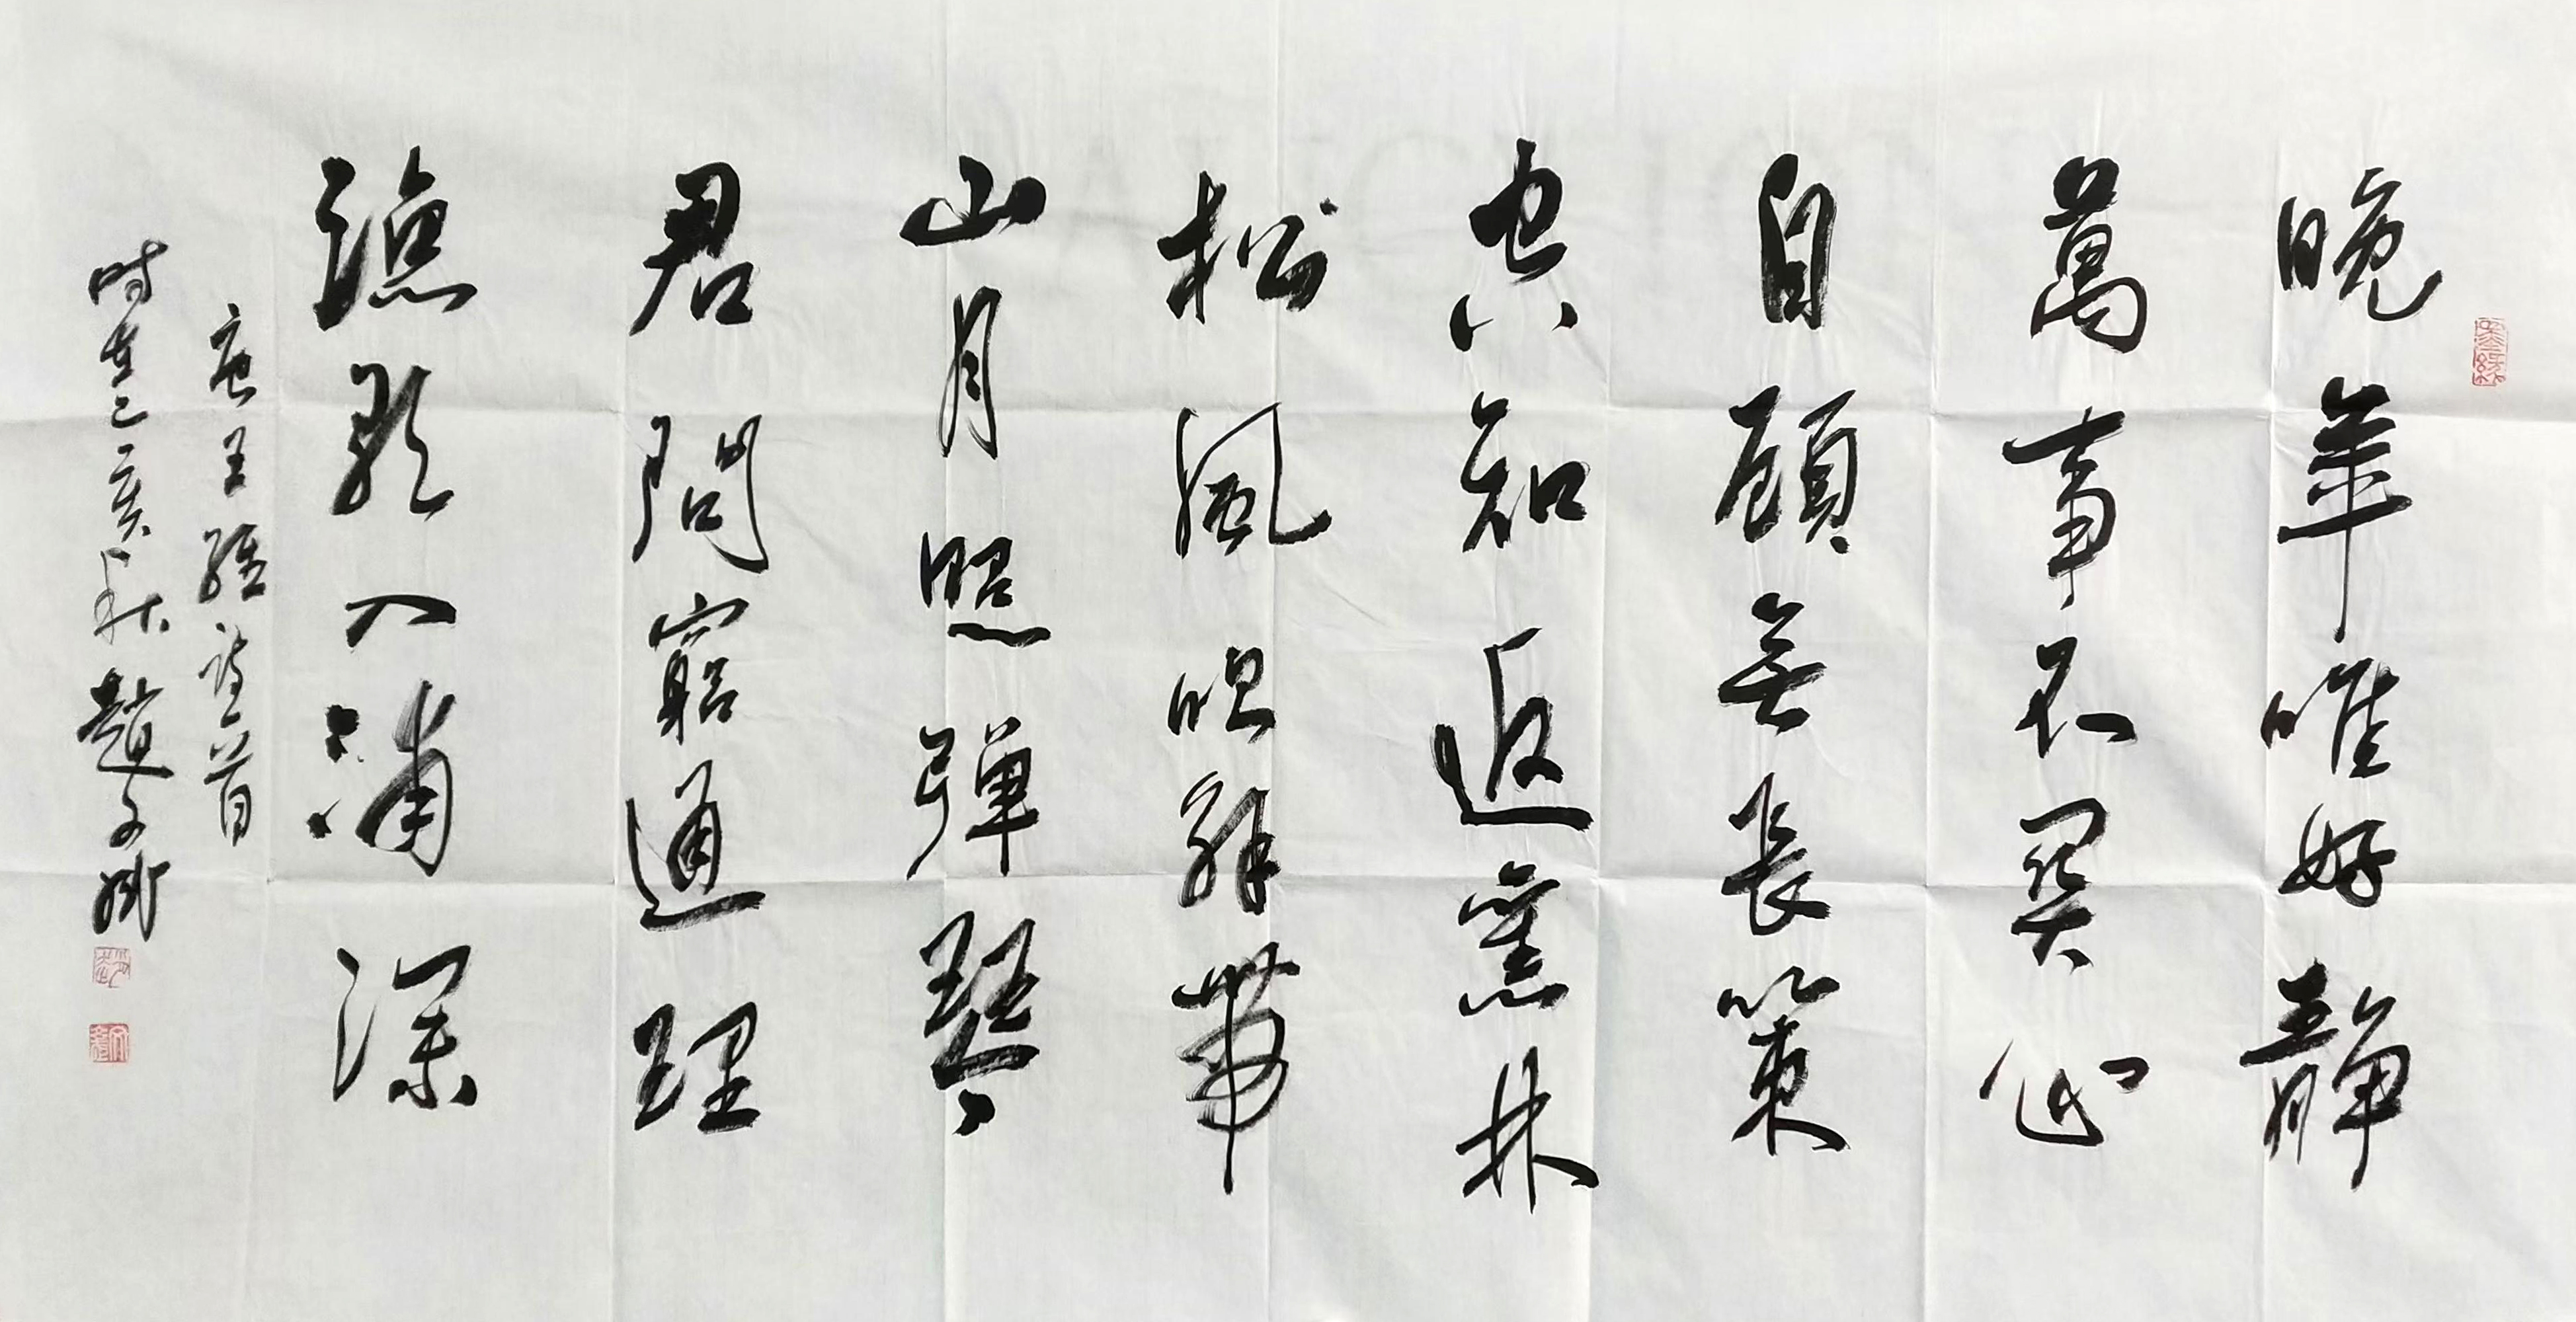 晚年唯好靜
萬事不關心
自顧無長策
空知返舊林
松風吹解帶
山月照彈琴
君問窮通理
漁歌入浦深
唐王維詩一首
時在己亥秋趙子